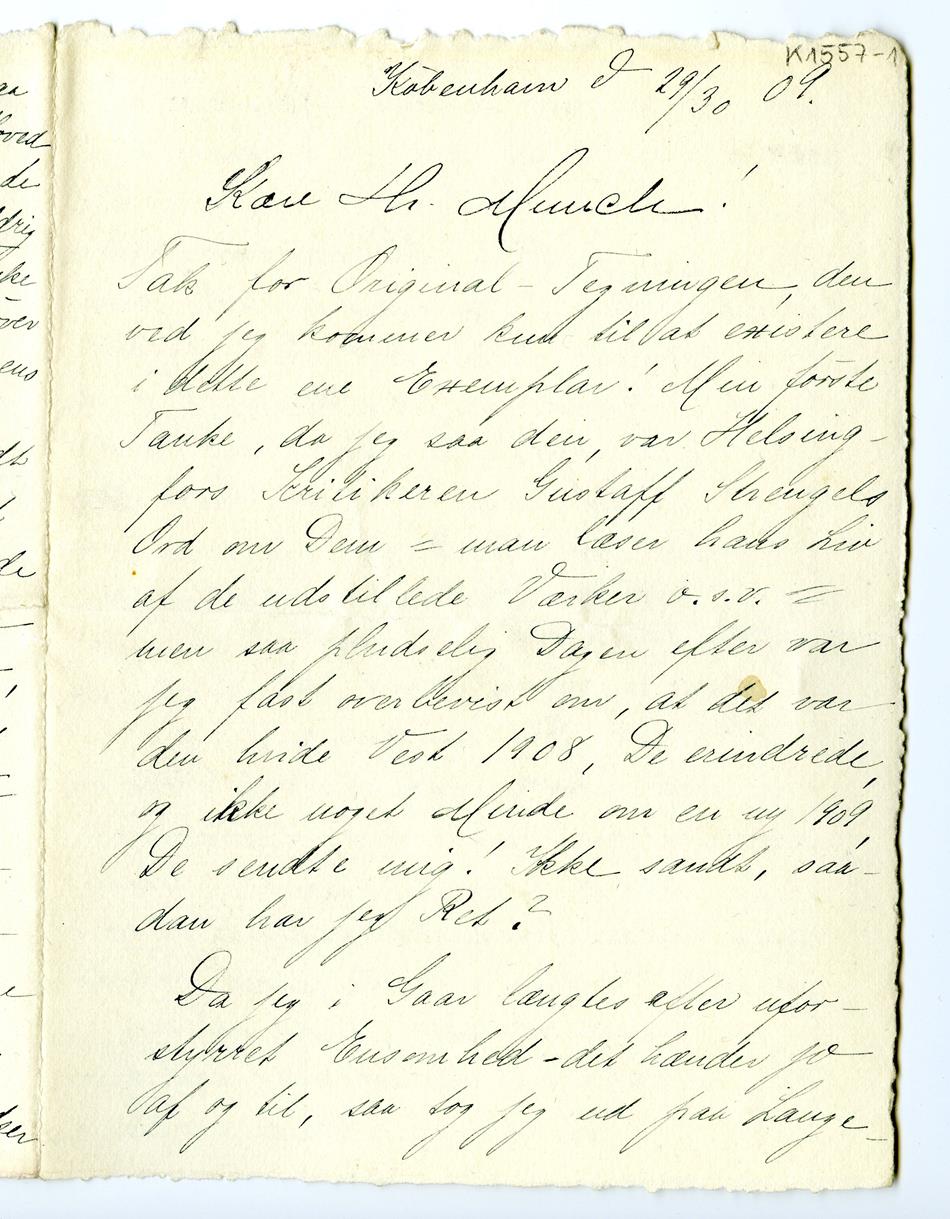 K1557-1
København d 29/30 09.
Kære Hr. Munch!
Tak for Original-Tegningen, den
ved jeg kommer kun til at existere
i dette ene Exemplar! Min første
Tanke, da jeg saa den, var Helsing-
fors Kritikeren Gustaff Strengels
Ord om Dem = man læser hans Liv
af de udstillede Værker o.s.v. =
men saa pludselig Dagen efter var
jeg fast overbevist om, at det var
den hvide Vest 1908, De erindrede,
og ikke noget Minde om en ny 1909,
De sendte mig! Ikke sandt, saa-
dan har jeg Ret?
Da jeg i Gaar længtes efter ufor-
styrret Ensomhed - det hænder jo
af og til, saa tog jeg ud paa Lange-
oved
de
drig
ke
ver
ens
dt
de
ser